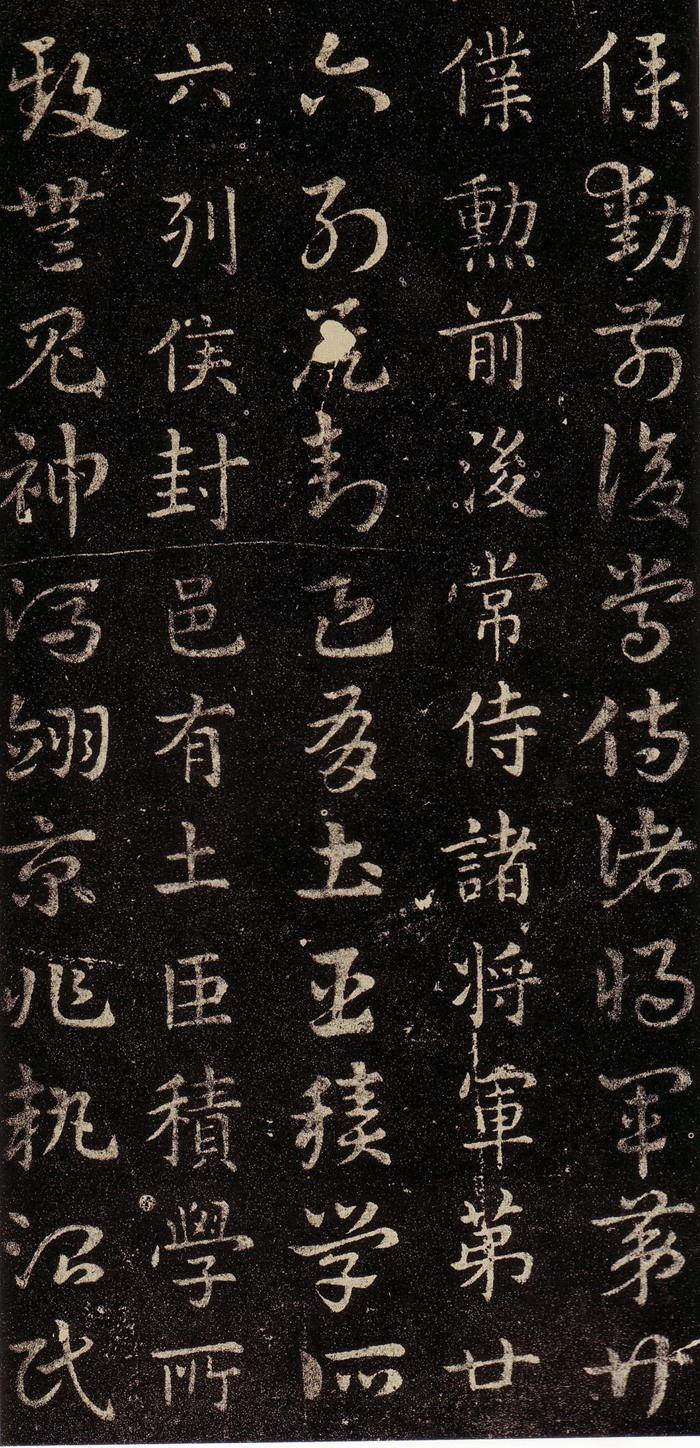 僕勳前後常侍諸將軍第廿
僕勳前後常侍諸将軍第廿
六列侯封邑有土臣積學所
六列侯封邑有土臣積學所
致無鬼神馮翊京兆執治民